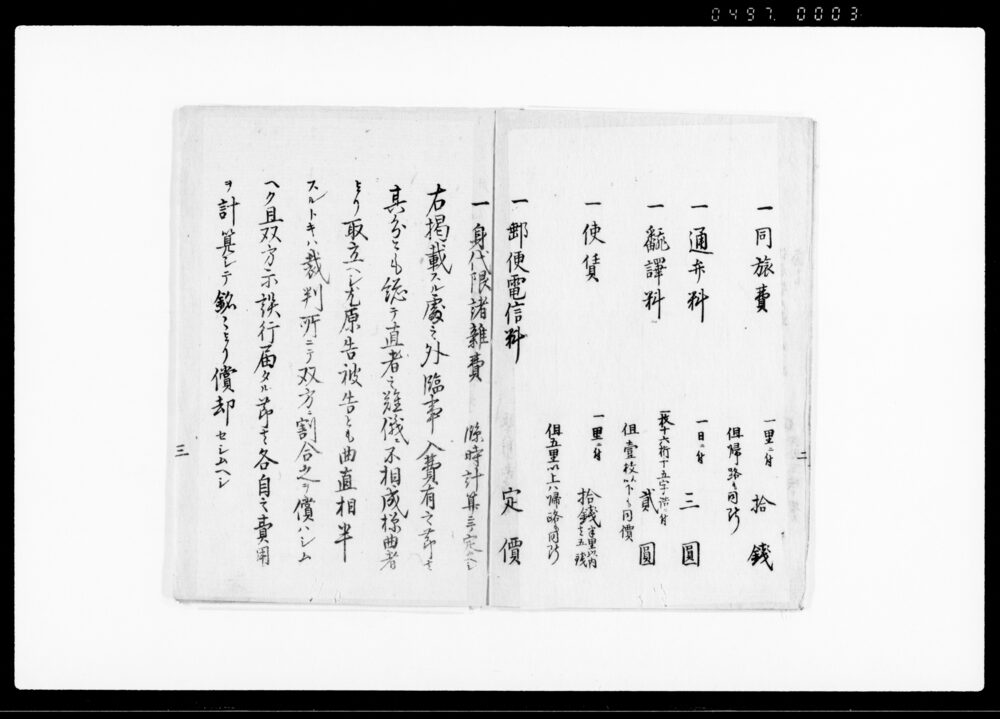 0497. 0003
一同旅費 一里ニ付 拾錢
但帰路モ同断
一通弁料 一日ニ付 三圓
一飜譯料 一枚十六行十五字詰ニ付 貳圓
但壹枚以下モ同價
一使賃 一里ニ付 拾錢 半里以内ハ五錢
但五里以上ハ帰路モ同断
一郵便電信料 定價
二
一身代限諸雜費 臨時計算ヲ定ムヘシ
右掲載スル處之外臨事入費有之節ハ
其分とも總テ直者之難儀ニ不相成様曲者
より取立ヘシ尤原告被告とも曲直相半
スルトキハ裁判所ニテ双方ニ割合之ヲ償ハシム
ヘク且双方示談行届タル節ハ各自之費用
ヲ計算シテ銘々より償却セシムヘシ
三